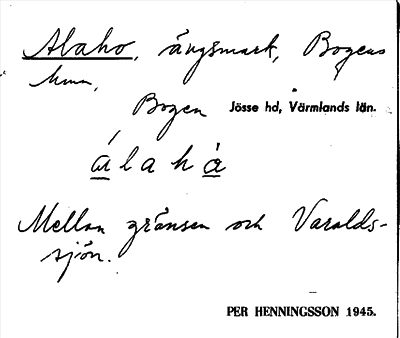 Alaho, ängsmark, Bogens
hmn,
Bogen Jösse hd, Värmlands län.
álahà
Mellan gränsen och Varalds-
sjön.
PER HENNINGSSON 1945.